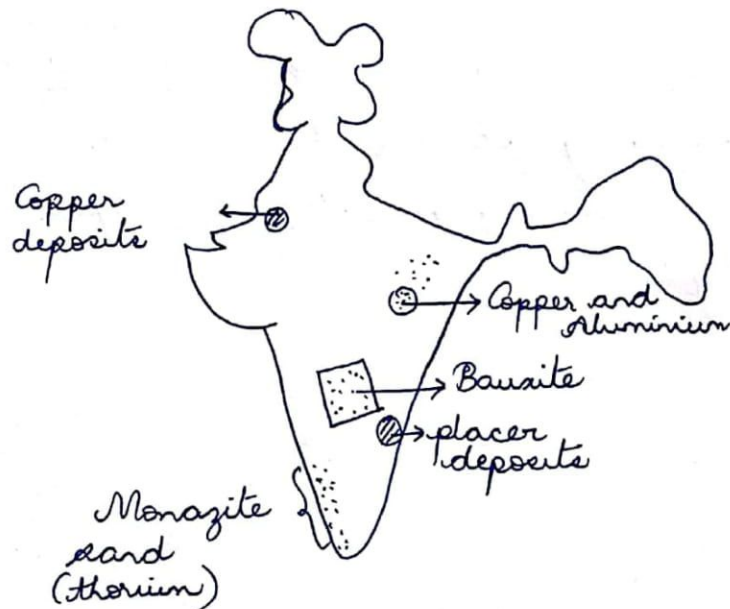 Copper
deposits
Copper and
Aluminium
Bauxite
placer
deposits
Monazite
sand
(thorium)